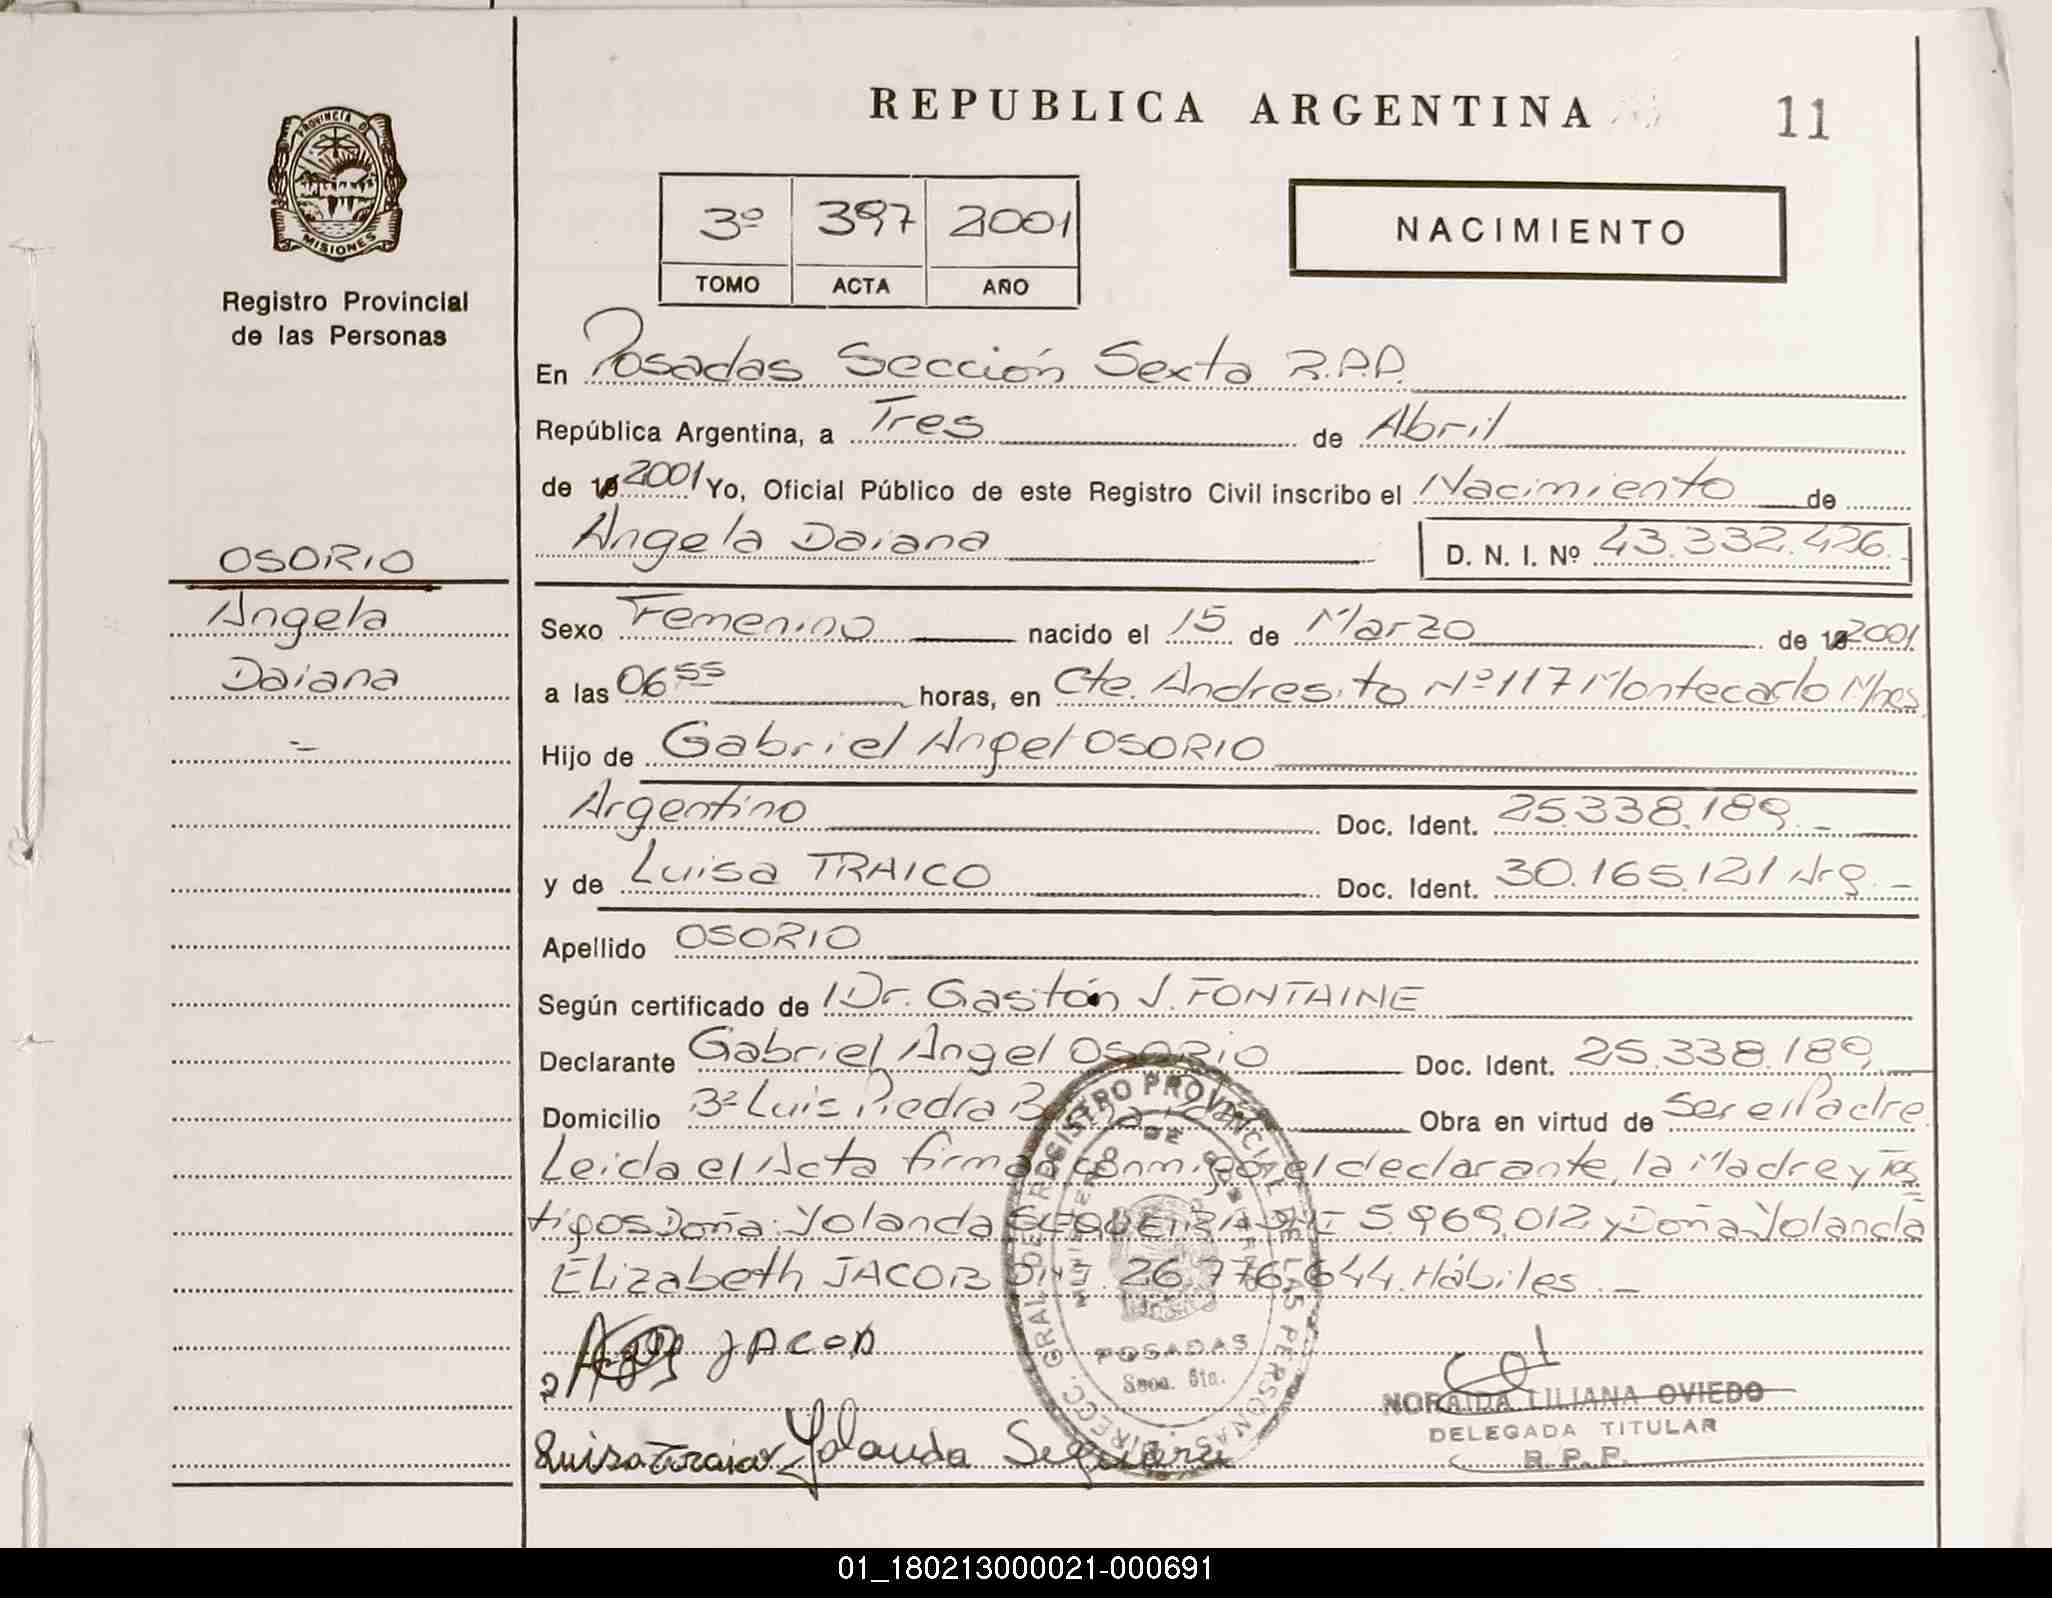 REPUBLICA ARGENTINA
11
PROVINCIA DE
MISIONES
Registro Provincial
de las Personas
3º 397 2001
TOMO ACTA AÑO
NACIMIENTO
En Posadas Sección Sexta R.P.P.
República Argentina, a Tres de Abril
de 2001 Yo, Oficial Público de este Registro Civil inscribo el Nacimiento de
Angela Daiana D. N. I. Nº 43.332.426.
OSORIO
Angela
Daiana
Sexo Femenino nacido el 15 de Marzo de 2001
a las 06 55 horas, en Cte. Andresito Nº 117 Montecarlo Mnes
Hijo de Gabriel Angel OSORIO
Argentino Doc. Ident. 25.338.189.-
y de Luisa TRAICO Doc. Ident. 30.165.121 Arg.-
Apellido OSORIO
Según certificado de Dr. Gastón J. FONTAINE
Declarante Gabriel Angel OSORIO Doc. Ident. 25.338.189
Domicilio Bº Luis Piedra Obra en virtud de ser el Padre
Leida el Acta firman conmigo el declarante, la Madre y Tes
tigos Doña: Yolanda DNI 5.969.012 y Doña Yolanda
Elizabeth JACOB DNI. 26.776.644. Hábiles.-
JACOB
Luisa Traico Yolanda
DIRECC. GRAL DEL REGISTRO PROVINCIAL DE LAS PERSONAS
MINISTERIO DE GOBIERNO
POSADAS
Secc. 6ta.
NORAIDA LILIANA OVIEDO
DELEGADA TITULAR
R. P. P.
01_180213000021-000691